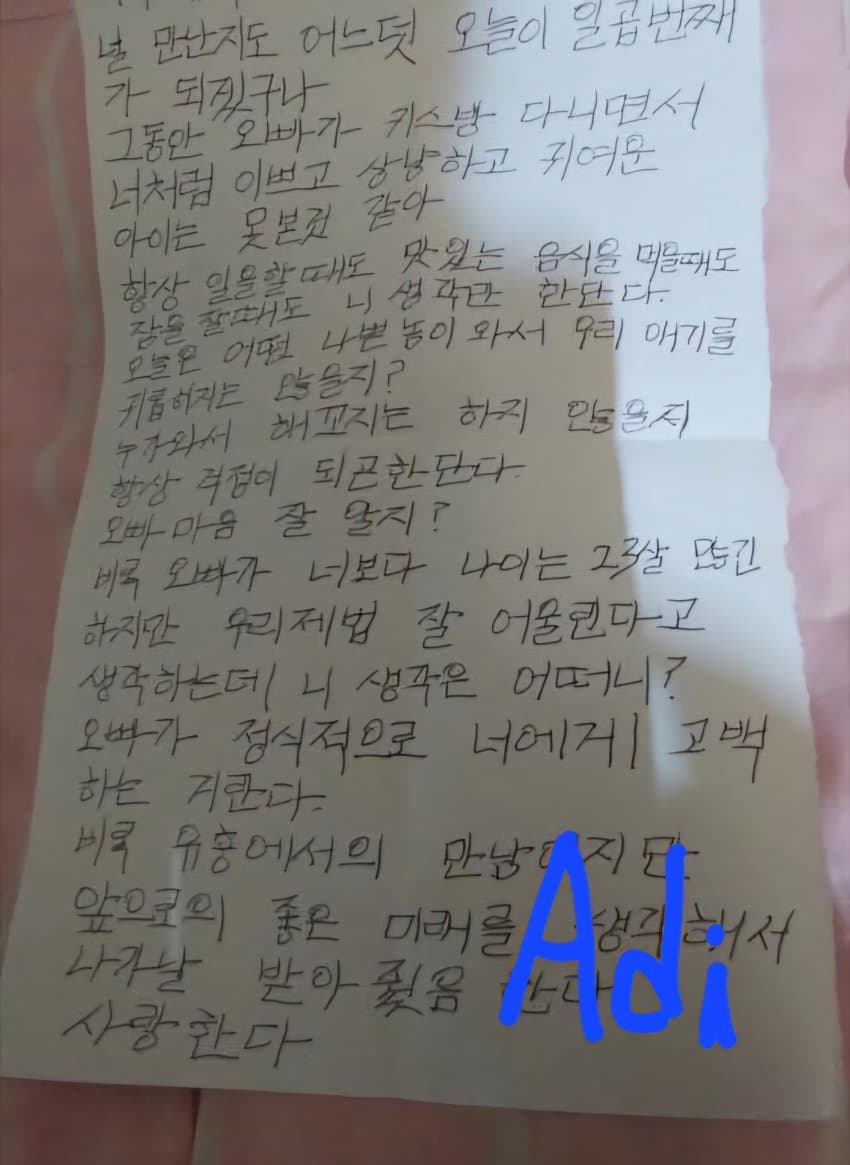 널 만난지도 어느덧 오늘이 일곱번째
가 되겠구나
그동안 오빠가 키스방 다니면서
너처럼 이쁘고 상냥하고 귀여운
아이는 못본것 같아
항상 일을할때도 맛있는 음식을 먹을때도
잠을 잘때도 니 생각만 한단다.
오늘은 어떤 나쁜놈이 와서 우리 애기를
괴롭히지는 않을지?
누가와서 해꼬지는 하지 않을지
항상 걱정이 되곤한단다.
오빠 마음 잘 알지?
비록 오빠가 너보다 나이는 23살 많긴
하지만 우리제법 잘 어울린다고
생각하는데 니 생각은 어떠니?
오빠가 정식적으로 너에게 고백
하는 거란다.
비록 유흥에서의 만남이지만
앞으로의 좋은 미래를 생각해서
나가날 받아줬음 한다
사랑한다
Adi